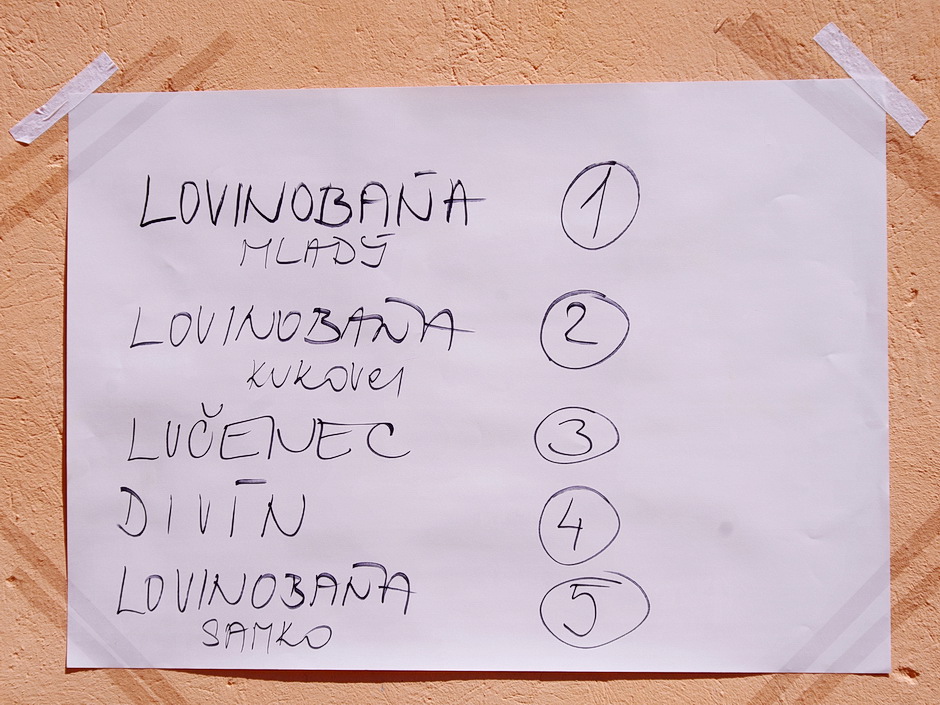 LOVINOBAŇA 1
MLADÝ
LOVINOBAŇA 2
KUKOVCI
LUČENEC 3
DIVÍN 4
LOVINOBAŇA 5
SAMKO